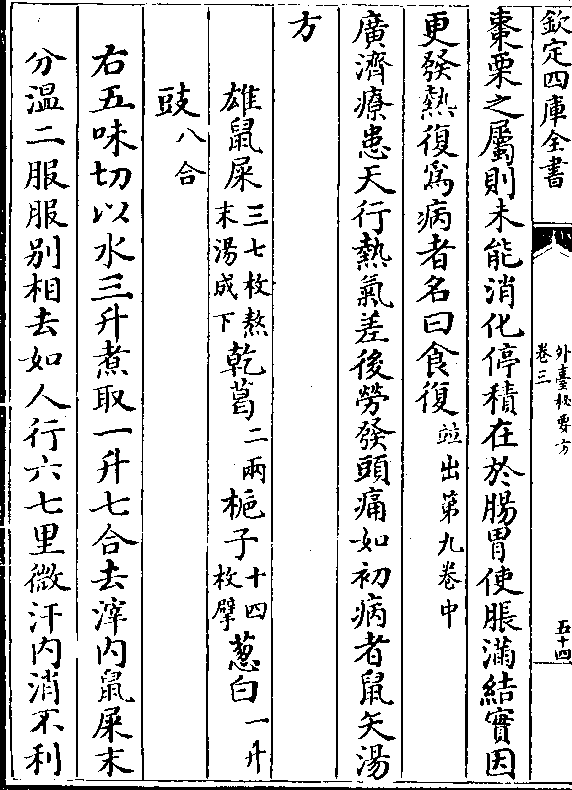 欽定四庫全書
外臺秘要方
卷三
五十四
棗栗之屬則未能消化停積在於腸胃使脹滿結實因
更發熱復為病者名曰食復並出第九卷中
廣濟療患天行熱氣差後勞發頭痛如初病者鼠矢湯
方
雄鼠屎三七枚熬末湯成下乾葛二兩梔子十四枚擘葱白一升
豉八合
右五味切以水三升煮取一升七合去滓内鼠屎末
分溫二服服别相去如人行六七里微汗内消不利